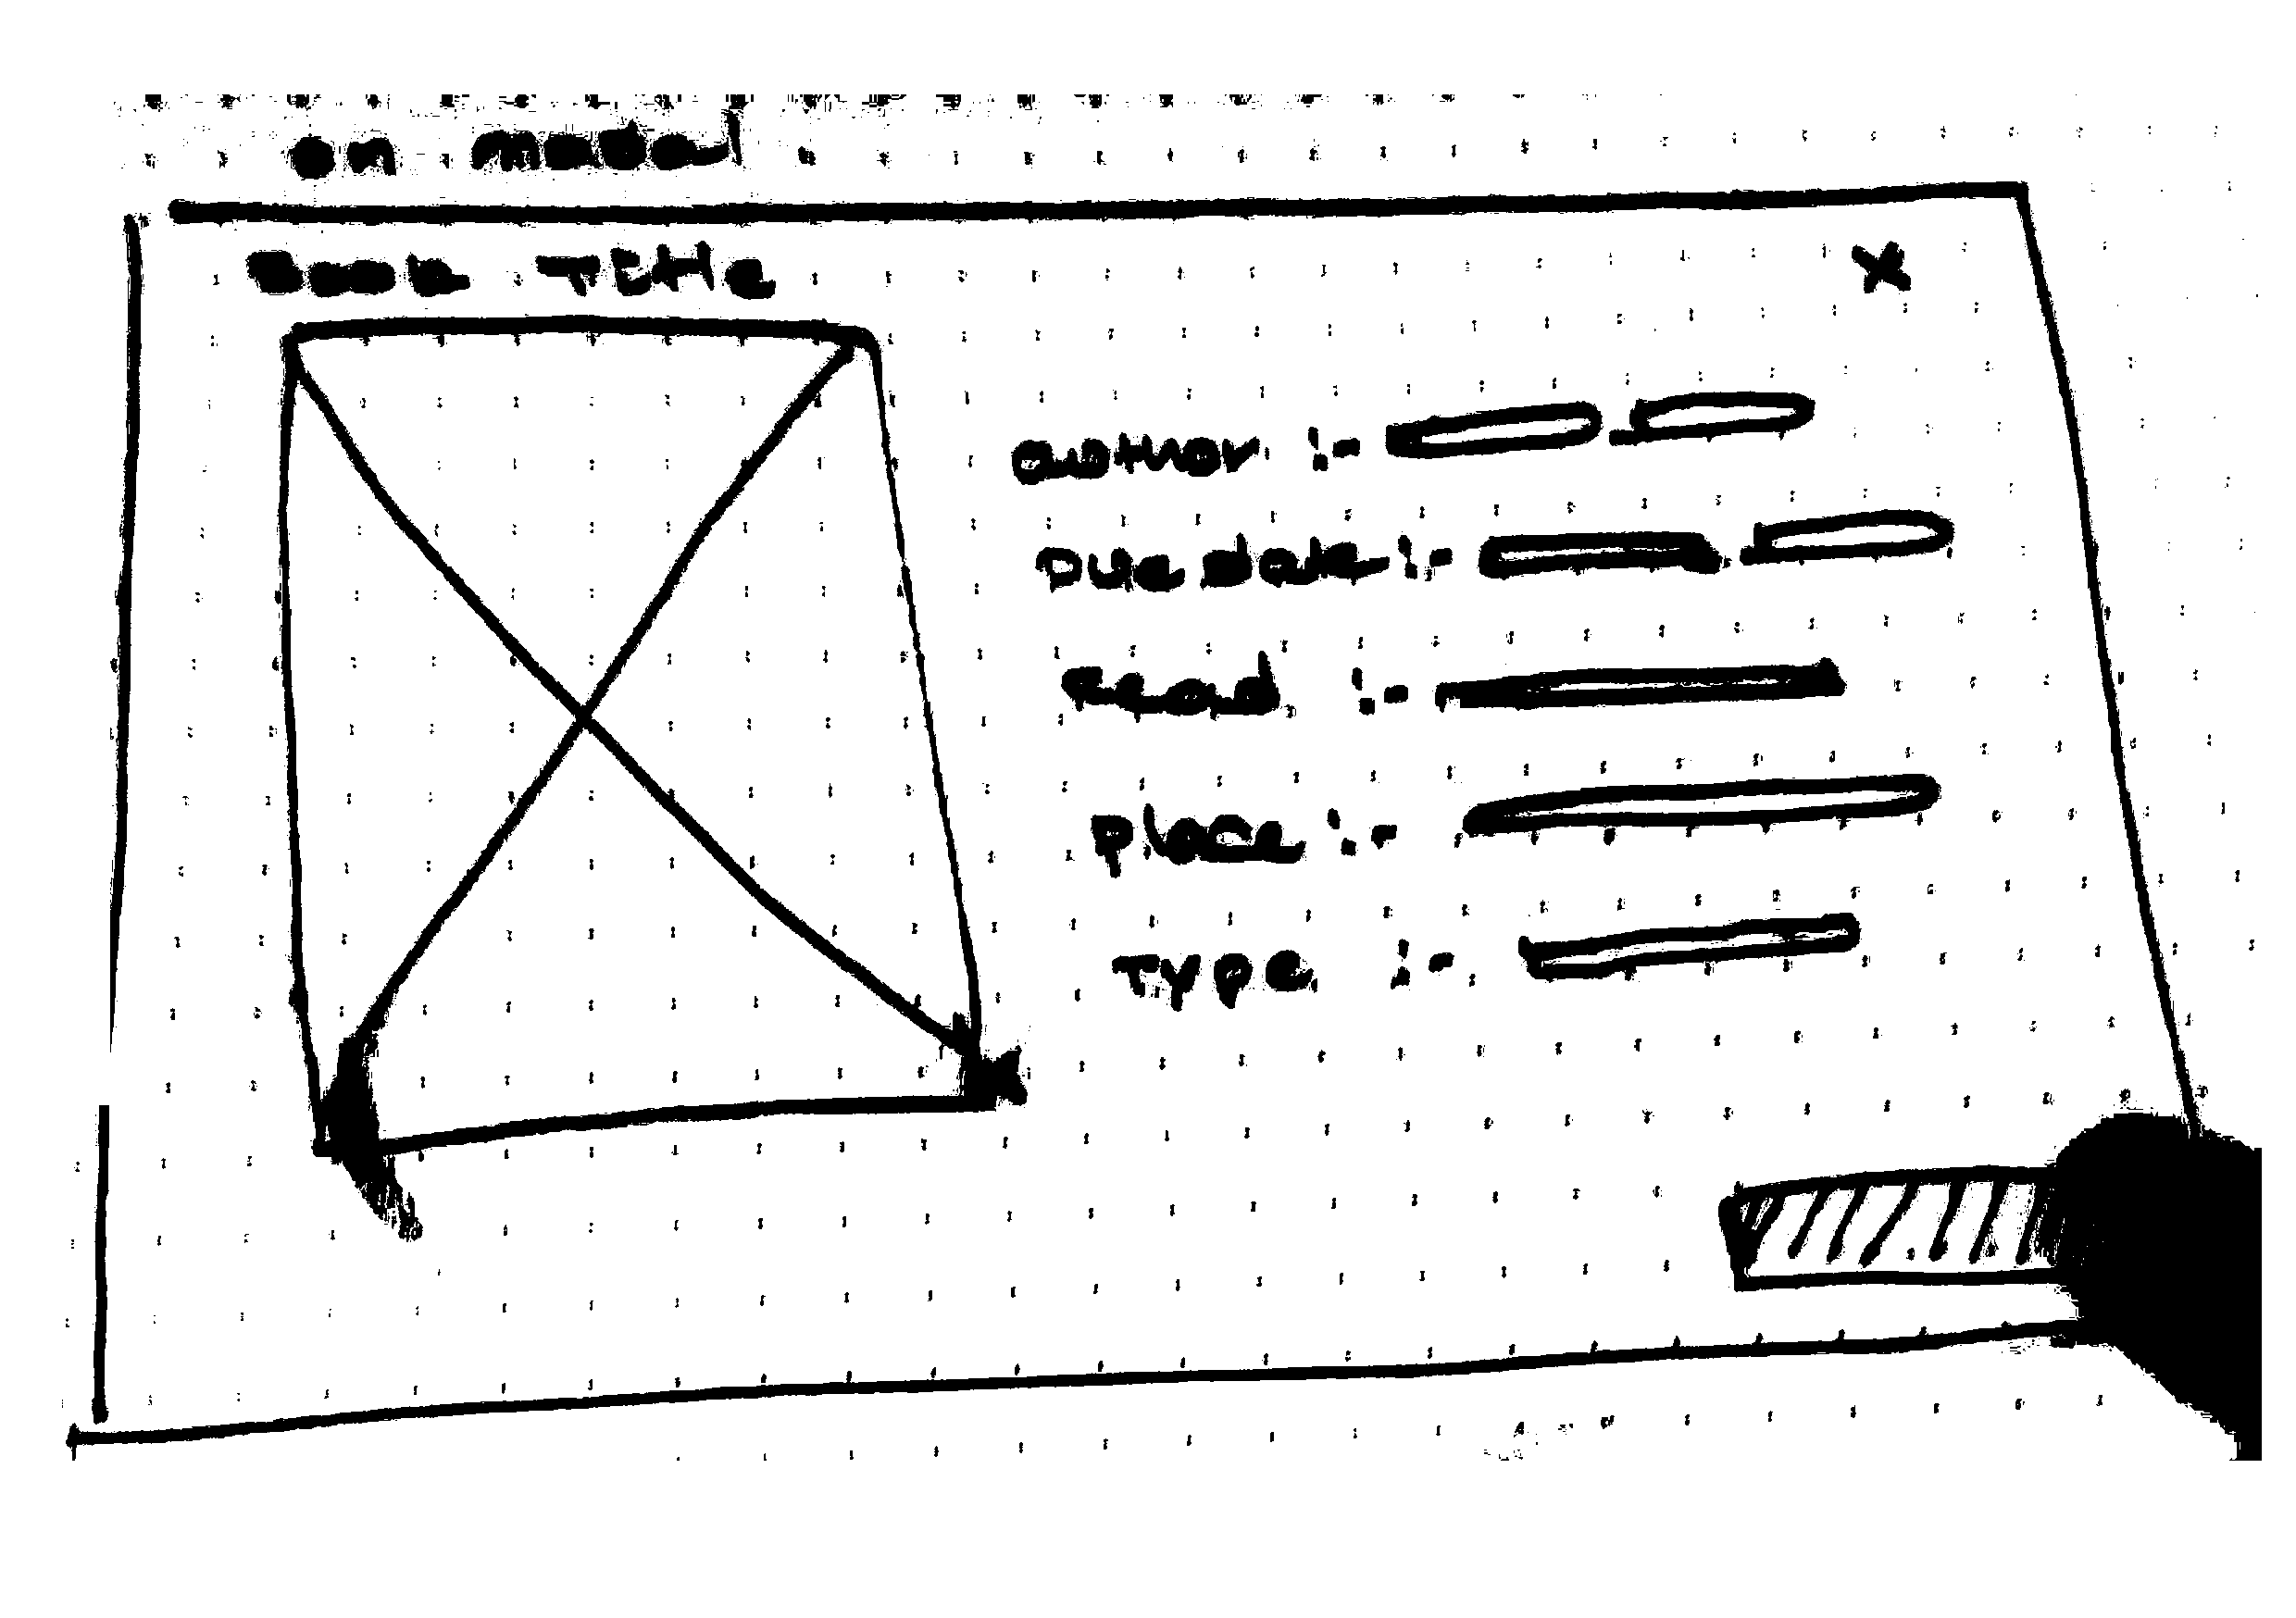 on modal
Book Title
x
author :-
Due date :-
Read :-
place :-
Type :-